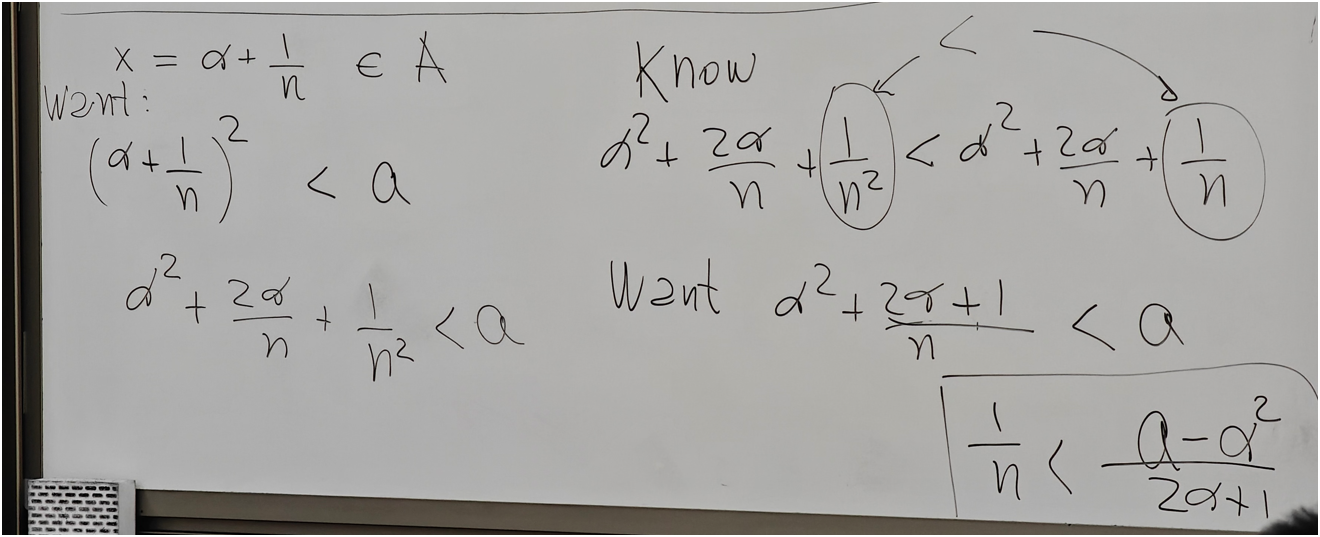 x = α + 1/n ∈ A
Want:
(α + 1/n)² < a
α² + 2α/n + 1/n² < a
<
Know
α² + 2α/n + 1/n² < α² + 2α/n + 1/n
Want α² + (2α + 1)/n < a
1/n < (a - α²)/(2α + 1)